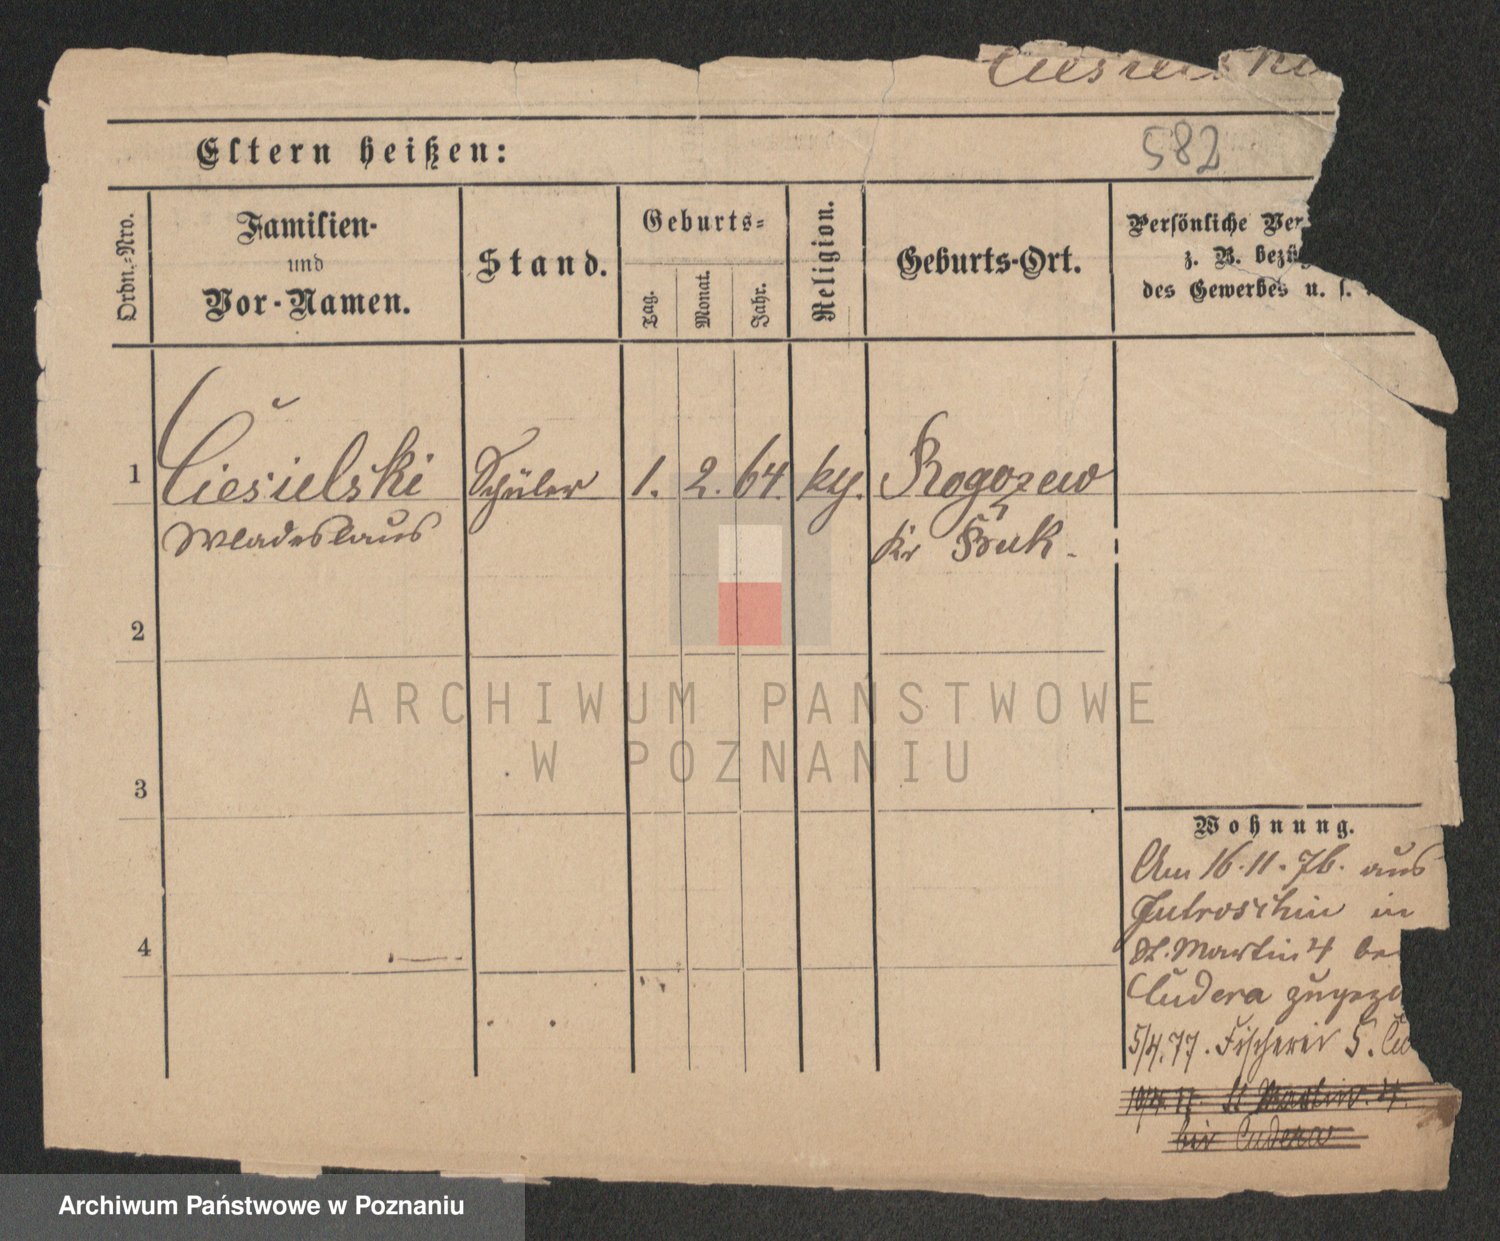 Ciesielski
582
Eltern heißen:
Ordn.-Nro.
Familien-
und
Vor-Namen.
Stand.
Geburts-
Tag.
Monat.
Jahr.
Religion.
Geburts-Ort.
Persönliche Ver
z. B. bezüg
des Gewerbes u. s.
1 Ciesielski Schüler 1. 2. 64. Rogozewo
Wladeslaus Kr Buk.
2
ARCHIWUM PAŃSTWOWE
W POZNANIU
3
Wohnung.
Am 16.11.76. aus
Jutroschin in
St. Martin 4 be
Cudera zugezo
4
5/4.77. Fischerei 5. Cu
10/4. 77. St Martin. 4.
bei Cudera
Archiwum Państwowe w Poznaniu